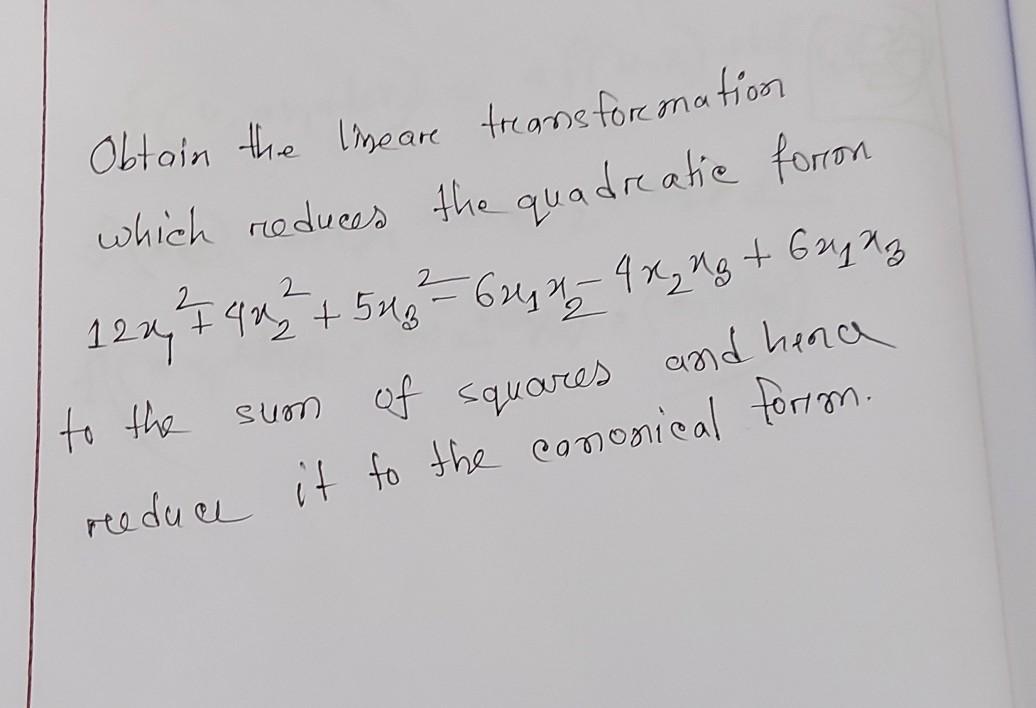 Obtain the linear transformation
which reduces the quadratic form
12x₁² + 4x₂² + 5x₃² - 6x₁x₂ - 4x₂x₃ + 6x₁x₃
to the sum of squares and hence
reduce it to the canonical form.